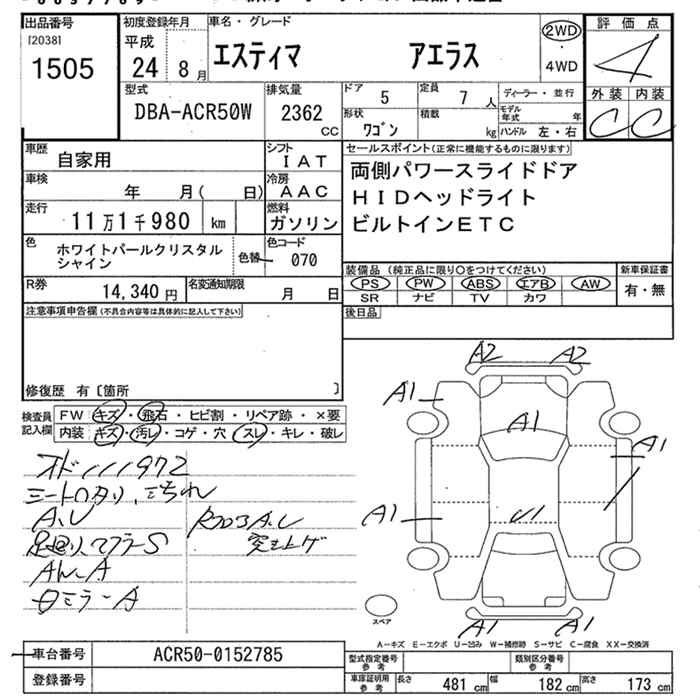 出品番号
[2038]
1505
初度登録年月
平成
24 8月
車名・グレード
エスティマ アエラス
2WD
・
4WD
評価点
4
外装 内装
C C
型式
DBA-ACR50W
排気量
2362
CC
ドア
5
定員
7人
形状
ワゴン
積載
kg
ディーラー・並行
モデル年式 年
ハンドル 左・右
車歴
自家用
シフト
IAT
車検
年 月( 日)
冷房
AAC
走行
11万1千980 km
燃料
ガソリン
色
ホワイトパールクリスタル
シャイン
色替
色コード
070
R券
14,340円
名変通知期限
月 日
セールスポイント(正常に機能するものに限ります)
両側パワースライドドア
HIDヘッドライト
ビルトインETC
装備品(純正品に限り○をつけてください)
PS PW ABS エアB AW
SR ナビ TV カワ
新車保証書
有・無
後日品
注意事項申告欄(不具合内容等は具体的に記入して下さい)
修復歴 有〔箇所 〕
検査員
記入欄
FW キズ・飛石・ヒビ割・リペア跡・×要
内装 キズ・汚レ・コゲ・穴・スレ・キレ・破レ
オド111972
A.U
突き上ゲ
A2 A2
A1
A1
A1
A1
A1 A1
スペア
A-キズ E-エクボ U-凹み W-補修跡 S-サビ C-腐食 XX-交換済
車台番号
ACR50-0152785
登録番号
型式指定番号
参考
類別区分番号
参考
車庫証明用
参考
長さ 481cm 幅 182cm 高さ 173cm